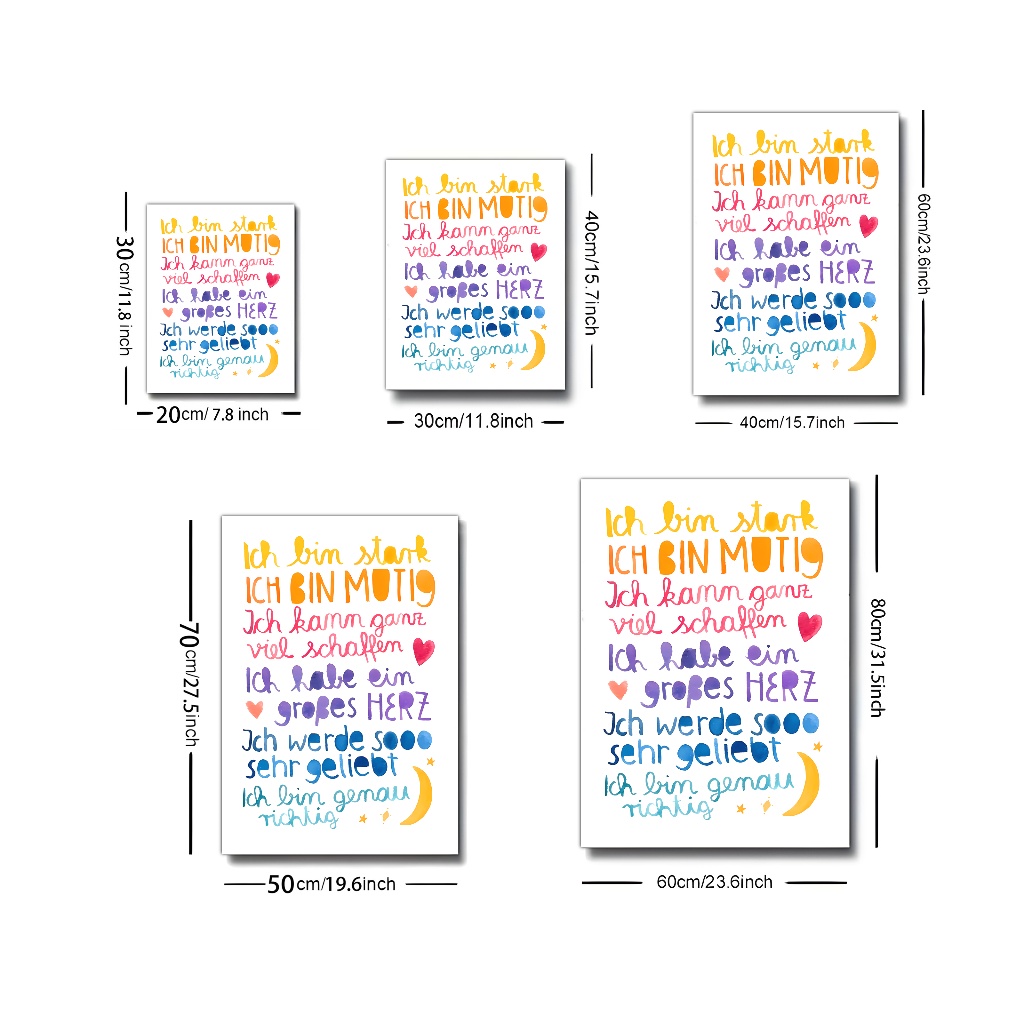 Ich bin stark
ICH BIN MUTIG
Ich kann ganz
viel schaffen
Ich habe ein
großes HERZ
Ich werde sooo
sehr geliebt
Ich bin genau
richtig
30cm/11.8 inch
20cm/ 7.8 inch
Ich bin stark
ICH BIN MUTIG
Ich kann ganz
viel schaffen
Ich habe ein
großes HERZ
Ich werde sooo
sehr geliebt
Ich bin genau
richtig
40cm/15.7inch
30cm/11.8inch
Ich bin stark
ICH BIN MUTIG
Ich kann ganz
viel schaffen
Ich habe ein
großes HERZ
Ich werde sooo
sehr geliebt
Ich bin genau
richtig
60cm/23.6inch
40cm/15.7inch
Ich bin stark
ICH BIN MUTIG
Ich kann ganz
viel schaffen
Ich habe ein
großes HERZ
Ich werde sooo
sehr geliebt
Ich bin genau
richtig
70cm/27.5inch
50cm/19.6inch
Ich bin stark
ICH BIN MUTIG
Ich kann ganz
viel schaffen
Ich habe ein
großes HERZ
Ich werde sooo
sehr geliebt
Ich bin genau
richtig
80cm/31.5inch
60cm/23.6inch